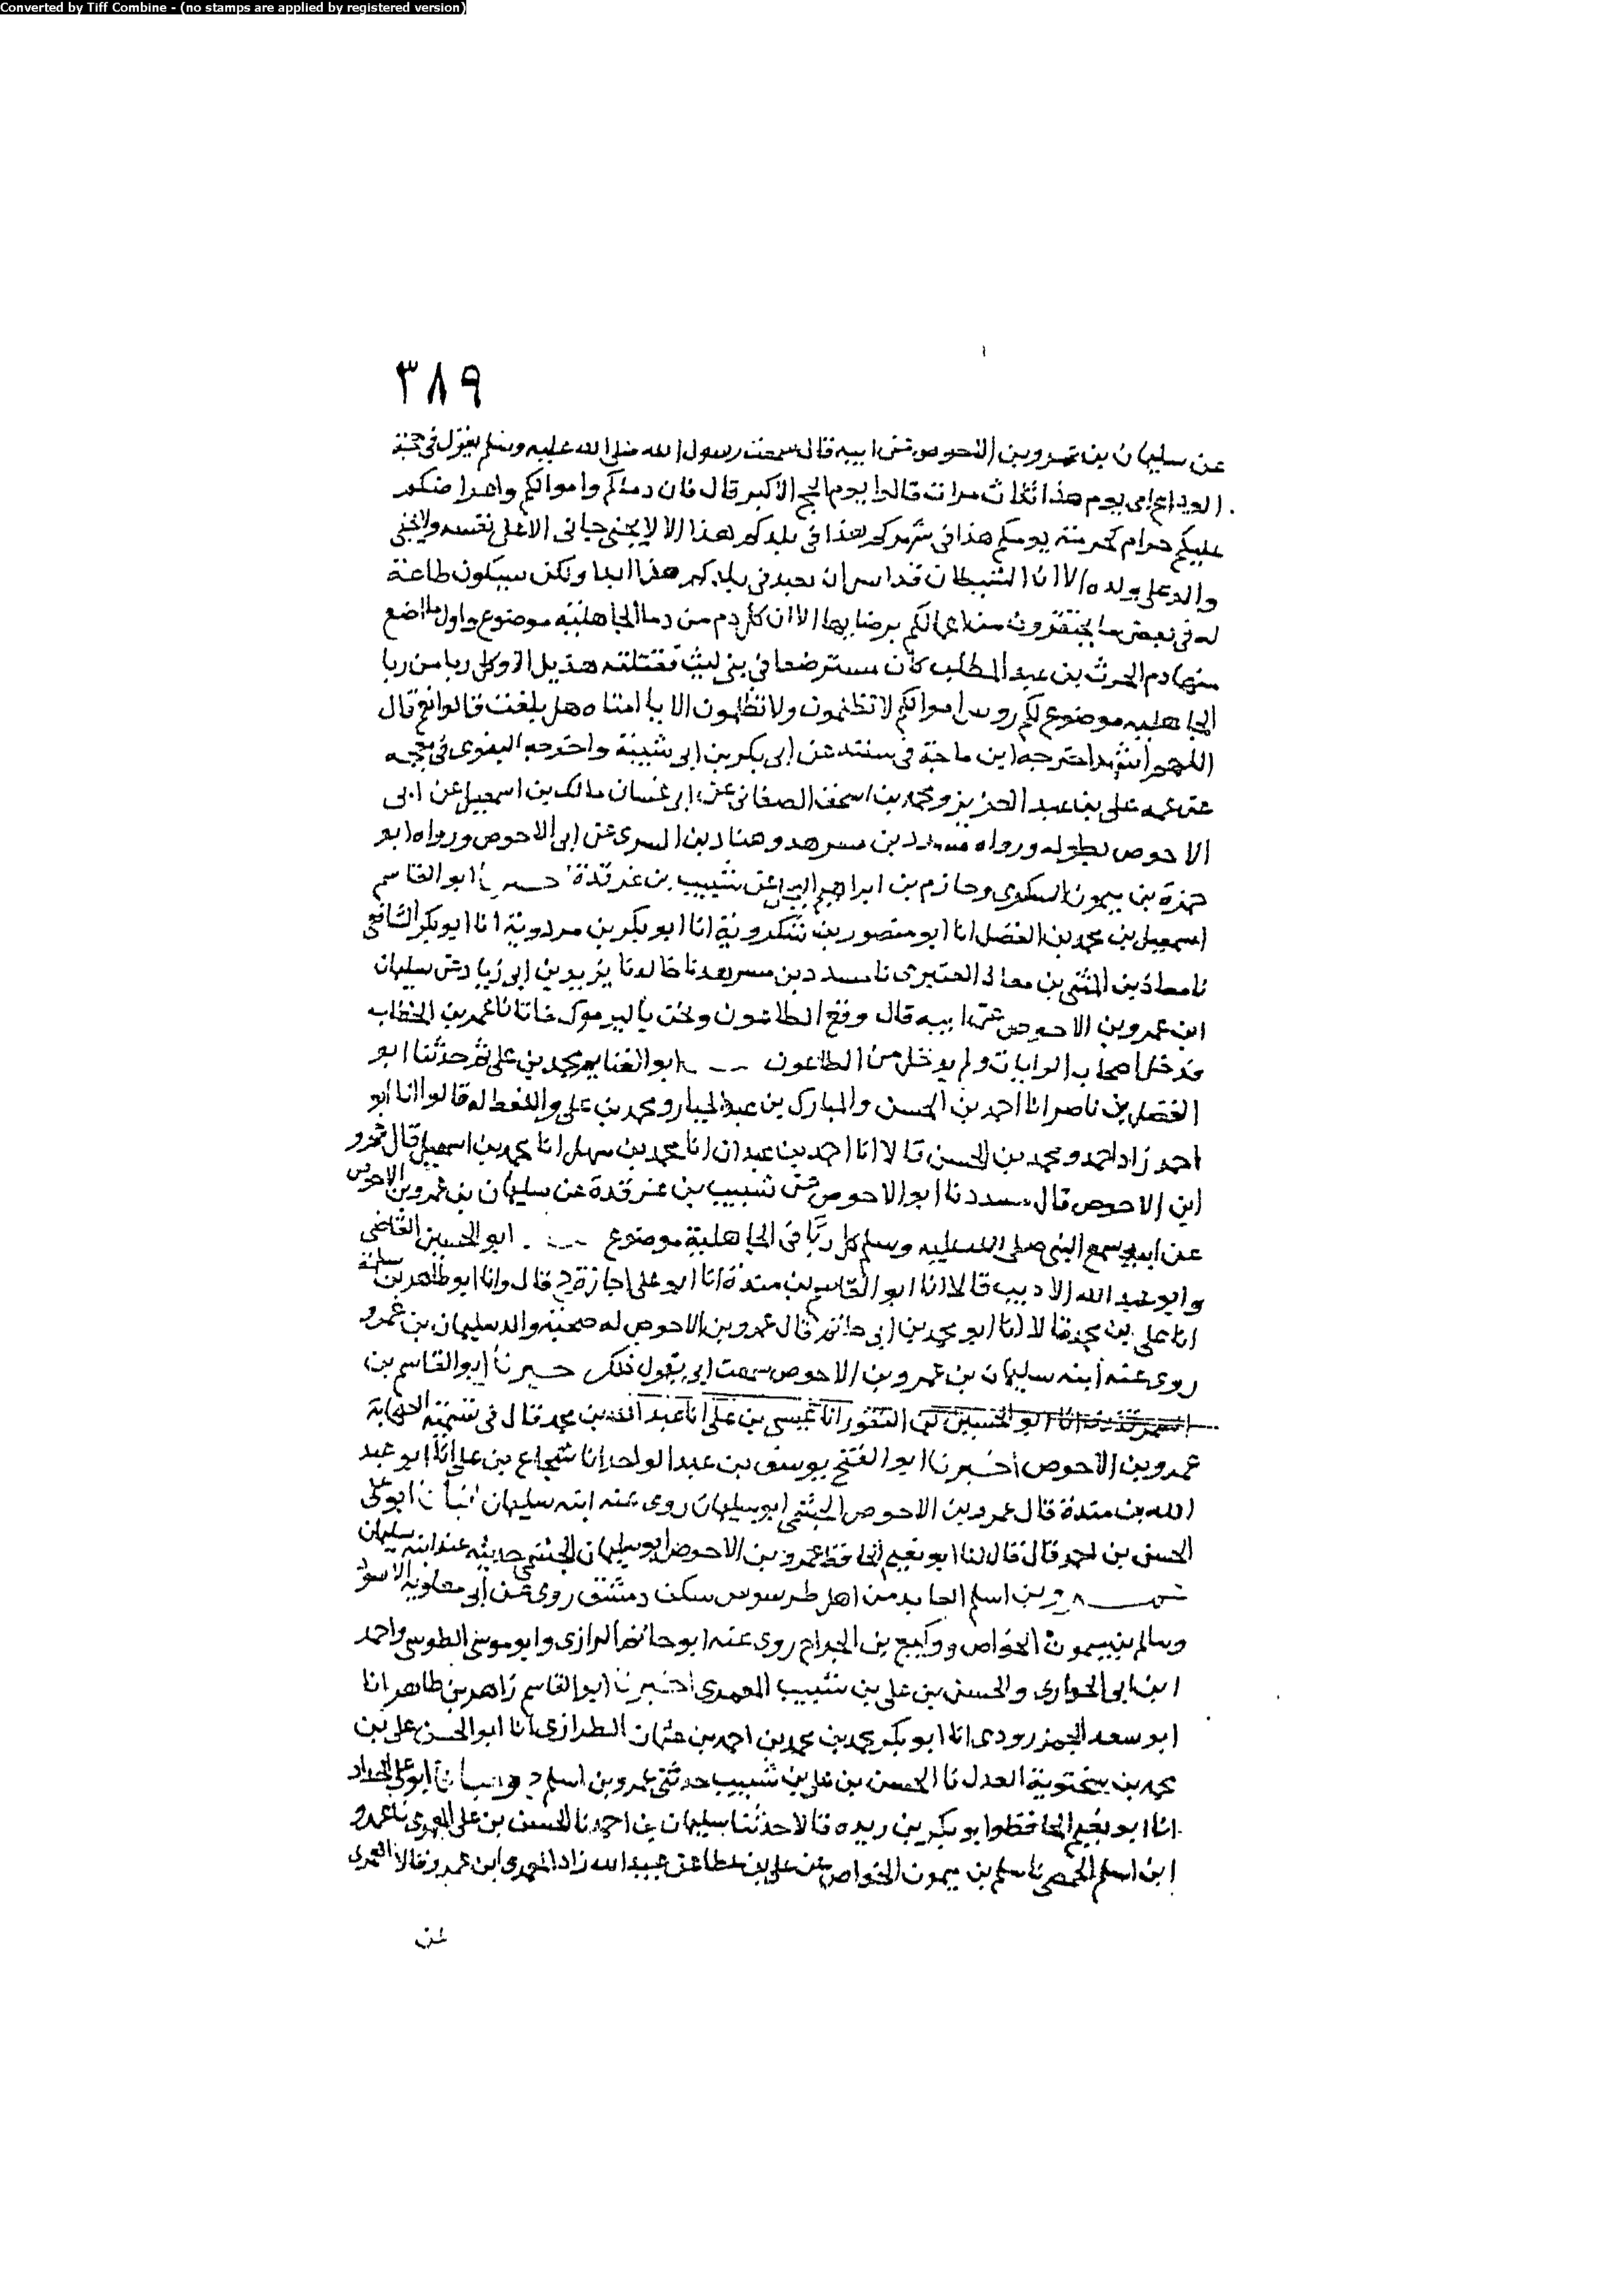 Converted by Tiff Combine - (no stamps are applied by registered version)
٣٨٩
عن سليمان بن عمرو بن الاحوص عن ابيه قال سمعت رسول الله صلى الله عليه وسلم يقول في حجة
الوداع اى يوم هذا ثلاث مرات قالوا يوم الحج الأكبر قال فان دماكم واموالكم واعراضكم
عليكم حرام كحرمة يومكم هذا في شهركم هذا في بلدكم هذا الا لا يجنى جانى الا على نفسه ولا يجنى
والد على ولده الا ان الشيطان قد ايس ان يعبد في بلدكم هذا ابدا ولكن سيكون طاعة
له في بعض ما تحتقرون من اعمالكم يرضا بها الا ان كل دم من دما الجاهلية موضوع واول ما اضع
منها دم الحرث بن عبد المطلب كان مسترضعا في بنى ليث فقتلته هذيل الا وكل ربا من ربا
الجاهلية موضوع لكم روس اموالكم لا تظلمون ولا تظلمون الا يا امتاه هل بلغت قالوا نعم قال
اللهم اشهد اخرجه ابن ماجة في سننه عن ابى بكر بن ابى شيبة واخرجه البغوى في معجمه
عن عمه على بن عبد العزيز ومحمد بن اسحق الصغانى عن ابى غسان مالك بن اسمعيل عن ابى
الاحوص بطوله ورواه مسدد بن مسرهد وهناد بن السرى عن ابى الاحوص ورواه ابو
حمزة بن ميمون السكرى وحازم بن ابراهيم البجلى عن شبيب بن غرقدة ابو القاسم
اسمعيل بن محمد بن الفضل انا ابو منصور بن شكروية انا ابو بكر بن مردوية انا ابو بكر الشافعى
نا معاذ بن المثنى بن معاذ العنبرى نا مسدد بن مسرهد نا خالد نا يزيد بن ابى زياد عن سليمان
ابن عمرو بن الاحوص عن ابيه قال وقع الطاعون ونحن باليرموك فاتانا عمر بن الخطاب
فدخل اصحاب الرايات ولم يدخل من الطاعون ابو الغنايم محمد بن على ثم حدثنا ابو
الفضل بن ناصر انا احمد بن الحسن والمبارك بن عبد الجبار ومحمد بن على واللفظ له قالوا انا ابو
احمد زاد احمد ومحمد بن الحسن قالا انا احمد بن عبدان انا محمد بن سهل انا محمد بن اسمعيل قال عمرو
ابن الاحوص قال مسدد نا ابو الاحوص عن شبيب بن غرقدة عن سليمان بن عمرو بن الاحوص
عن ابيه سمع النبي صلى الله عليه وسلم كل ربًا في الجاهلية موضوع ابو الحسين القاضى
وابو عبد الله الاديب قالا انا ابو القاسم بن مندة انا ابو على اجازة ح قال وانا ابو طاهر بن سلمة
انا على بن محمد قالا انا ابو محمد بن ابى حاتم قال عمرو بن الاحوص له صحبة والد سليمان بن عمرو
روى عنه ابنه سليمان بن عمرو بن الاحوص سمعت ابى يقول ذلك خبرنا ابو القاسم بن
السمرقندى انا ابو الحسين بن النقور انا عيسى بن على انا عبد الله بن محمد قال في تسمية الصحابة
عمرو بن الاحوص اخبرنا ابو الفتح يوسف بن عبد الواحد انا شجاع بن على انا ابو عبد
الله بن مندة قال عمرو بن الاحوص الجشمى ابو سليمان روى عنه ابنه سليمان انبانا ابو على
الحسن بن احمد قال قال لنا ابو نعيم الحافظ عمرو بن الاحوص ابو سليمان الجشمى حديثه عند ابنه سليمان
عمرو بن اسلم العابد من اهل طرسوس سكن دمشق روى عن ابى معاوية الاسود
وسالم بن ميمون الخواص ووكيع بن الجراح روى عنه ابو حاتم الرازى وابو موسى الطوسى واحمد
ابن ابى الحوارى والحسن بن على بن شبيب المعمرى اخبرنا ابو القاسم زاهر بن طاهر انا
ابو سعد الجنزرودى انا ابو بكر محمد بن محمد بن احمد بن عثمان الطرازى انا ابو الحسن على بن
محمد بن يبختوية العدل نا الحسن بن على بن شبيب حدثنى عمرو بن اسلم ح وانبانا ابو على الحداد
انا ابو نعيم الحافظ وابو بكر بن ريده قالا حدثنا سليمان بن احمد نا الحسن بن على المعمرى نا عمرو
ابن اسلم الحمصى نا سلم بن ميمون الخواص عن على بن عطا عن عبيد الله زاد المعمرى ابن عمر وقالا العمرى
عن